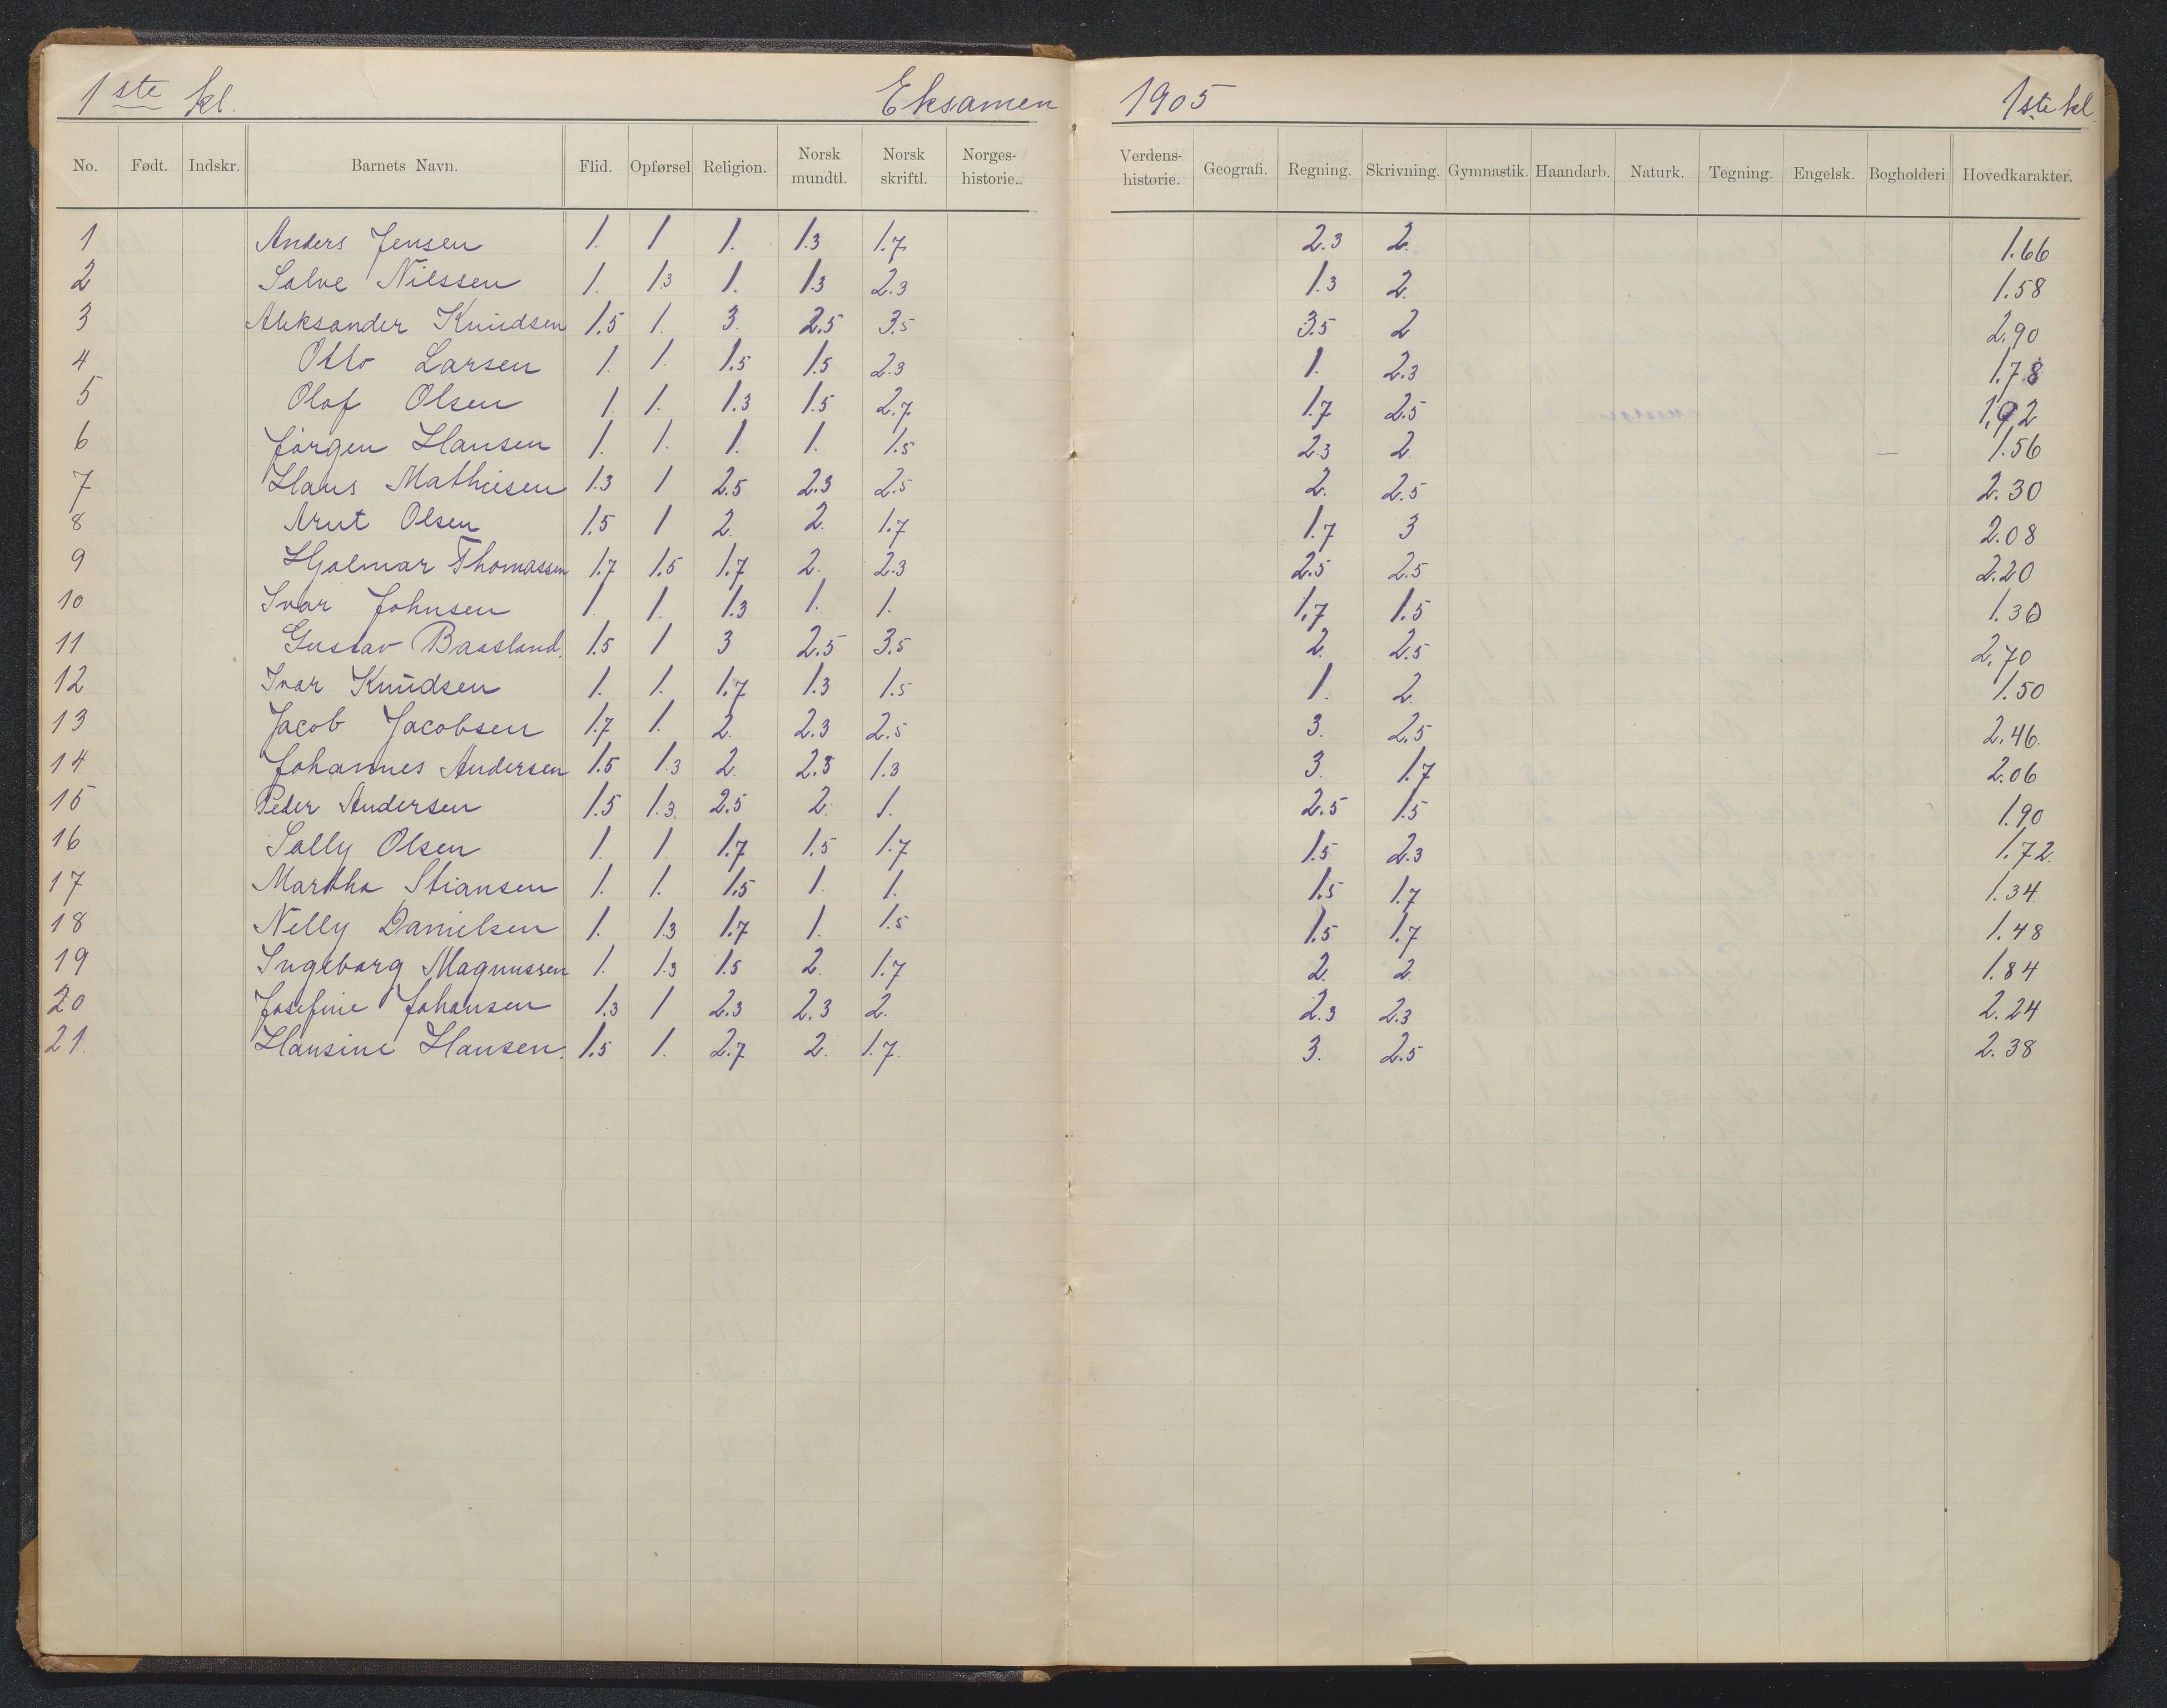 1ste kl. Eksamen 1905 1ste kl.
No. Født. Indskr. Barnets Navn. Flid. Opførsel Religion. Norsk mundtl. Norsk skriftl. Norges-historie. Verdens-historie. Geografi. Regning. Skrivning. Gymnastik. Haandarb. Naturk. Tegning. Engelsk. Bogholderi Hovedkarakter.
1 Anders Jensen 1. 1 1. 1.3 1.7 2.3 2. 1.66
2 Salve Nilssen 1. 1.3 1. 1.3 2.3 1.3 2. 1.58
3 Aleksander Knudsen 1.5 1. 3. 2.5 3.5 3.5 2 2.90
4 Otto Larsen 1. 1. 1.5 1.5 2.3 1. 2.3 1.78
5 Olaf Olsen 1. 1. 1.3 1.5 2.7 1.7 2.5 1.92
6 Jørgen Hansen 1. 1. 1. 1. 1.5 2.3 2 1.56
7 Hans Mathiesen 1.3 1 2.5 2.3 2.5 2. 2.5 2.30
8 Arnt Olsen 1.5 1 2. 2. 1.7 1.7 3 2.08
9 Hjalmar Thomassen 1.7 1.5 1.7 2. 2.3 2.5 2.5 2.20
10 Ivar Johnsen 1. 1. 1.3 1. 1. 1.7 1.5 1.30
11 Gustav Baasland. 1.5 1 3 2.5 3.5 2. 2.5 2.70
12 Ivar Knudsen 1. 1. 1.7 1.3 1.5 1. 2 1.50
13 Jacob Jacobsen 1.7 1. 2. 2.3 2.5 3. 2.5 2.46.
14 Johannes Andersen 1.5 1.3 2. 2.3 1.3 3. 1.7 2.06
15 Peder Andersen 1.5 1.3. 2.5 2. 1. 2.5 1.5 1.90
16 Sally Olsen 1. 1. 1.7 1.5 1.7 1.5 2.3 1.72.
17 Martha Stiansen 1. 1. 1.5 1. 1. 1.5 1.7 1.34.
18 Nelly Danielsen 1. 1.3 1.7 1. 1.5 1.5 1.7 1.48
19 Ingeborg Magnussen 1. 1.3 1.5 2. 1.7 2. 2 1.84
20 Josefine Johansen 1.3 1 2.3 2.3 2. 2.3 2.3 2.24
21. Hansine Hansen. 1.5 1. 2.7 2. 1.7. 3. 2.5 2.38